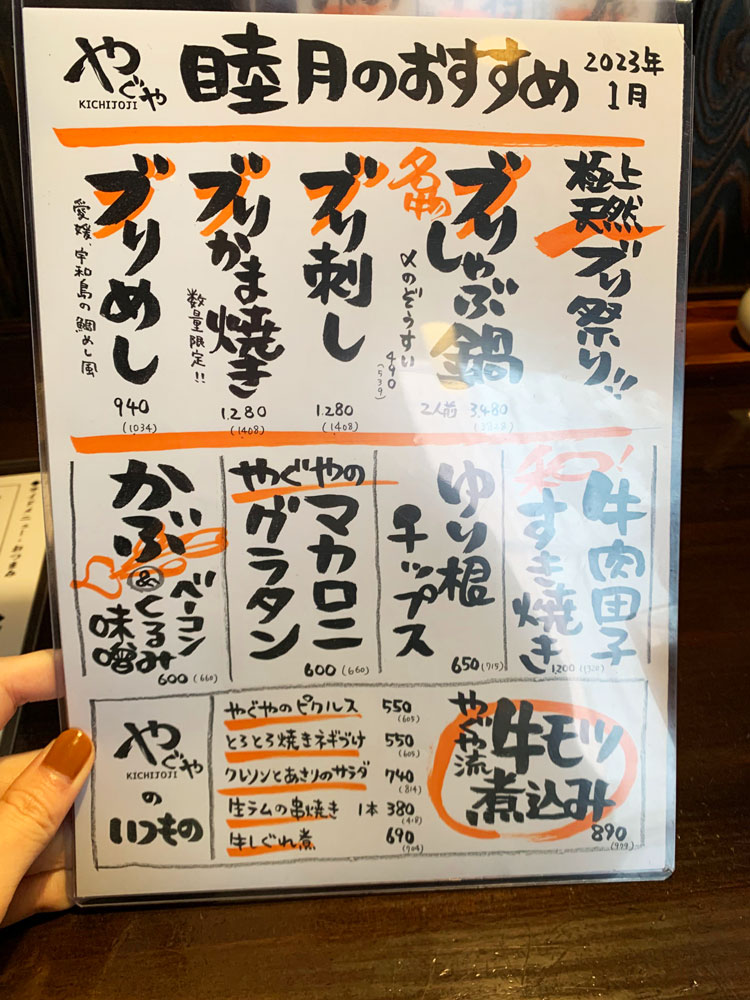 やぐや
KICHIJOJI
睦月のおすすめ
2023年
1月
極上
天然
ブリ祭り!!
名物
ブリしゃぶ鍋
2人前 3,480
〆のぞうすい 490
(539)
ブリ刺し
1,280
(1408)
ブリかま焼き
数量限定!!
1,280
(1408)
ブリめし
愛媛、宇和島の鯛めし風
940
(1034)
和!
牛肉団子
すき焼き
1,200
ゆり根
チップス
650(715)
やぐやの
マカロニ
グラタン
600(660)
かぶ
&
ベーコン
くるみ
味噌
600(660)
やぐや
KICHIJOJI
の
いつもの
やぐやのピクルス 550
(605)
とろとろ焼きネギづけ 550
(605)
クレソンとあさりのサラダ 740
(814)
生ラムの串焼き 1本 380
(418)
牛しぐれ煮 690
やぐや流
牛モツ
煮込み
890
(979)